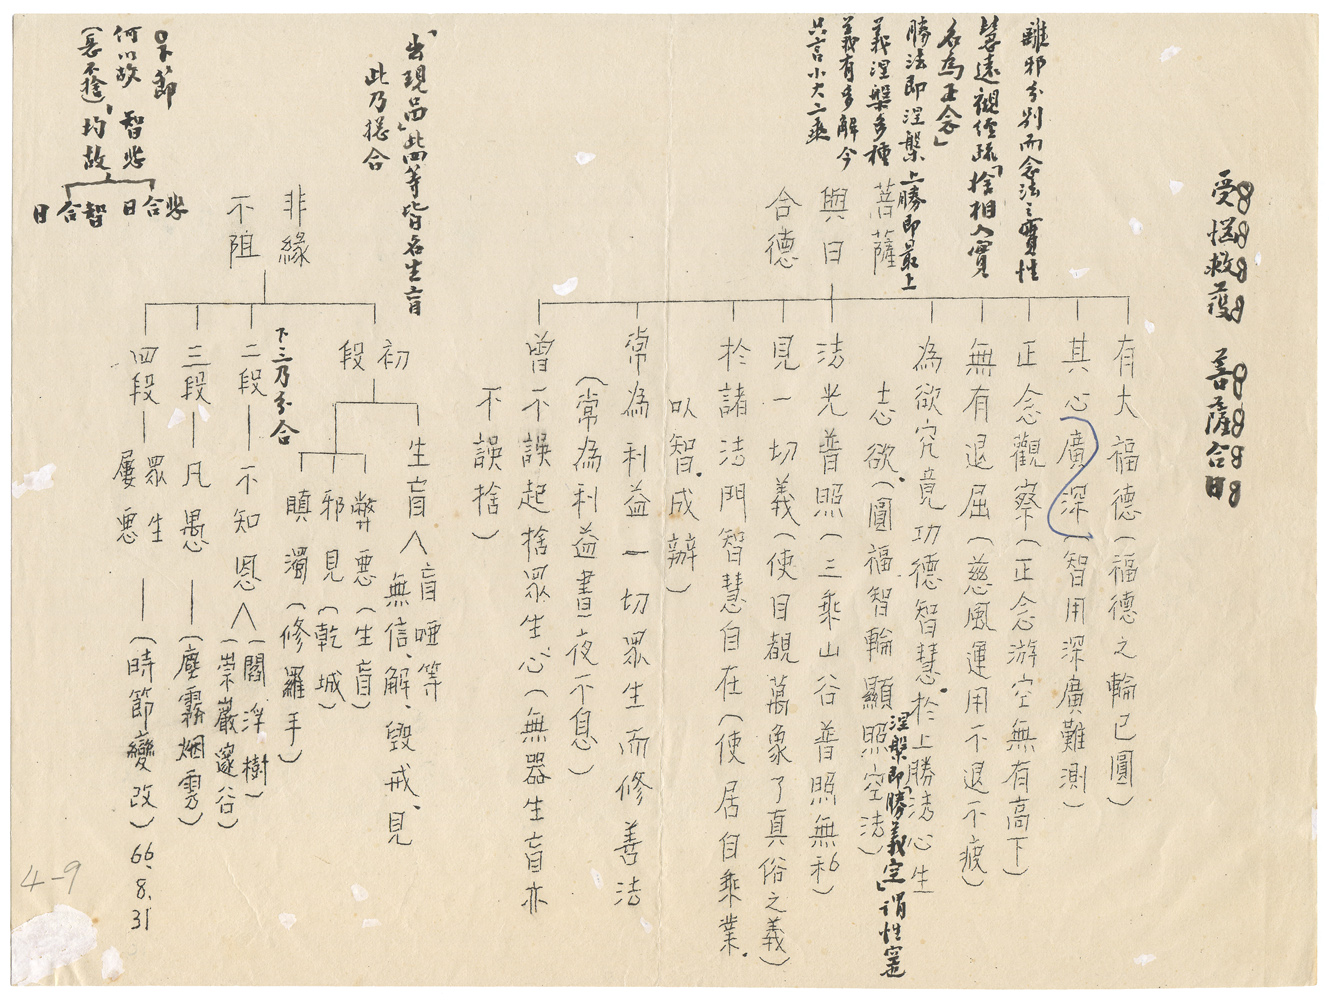 受惱救護 菩薩合日
離邪分別而念法之實性
慧遠觀經疏「捨相入實
名為正念」
勝法即涅槃上勝即最上
義涅槃多種
義有多解今
只言小大二乘
菩薩
與日
合德
有大福德（福德之輪已圓）
其心廣深（智用深廣難測）
正念觀察（正念游空無有高下）
無有退屈（慈風運用不退不疲）
為欲究竟功德智慧於上勝法心生
志欲（圓福智輪顯照空法）
涅槃即「勝義空」謂性空
法光普照（三乘山谷普照無私）
見一切義（使目覩萬象了真俗之義）
於諸法門智慧自在（使居自乘業
以智成辦）
常為利益一切眾生而修善法
（常為利益晝夜不息）
曾不誤起捨眾生心（無器生盲亦
不誤捨）
「出現品」此四等皆名生盲
此乃總合
非緣
不阻
初
段
生盲
盲啞等
無信、解、毀戒、見
弊惡（生盲）
邪見（乾城）
瞋濁（修羅手）
下三乃分合
二段—不知恩
（閻浮樹）
（崇巖邃谷）
三段—凡愚—（塵霧烟雲）
四段—眾生
屢惡—（時節變改）66.8.31
何以故 智悲
（惡不捨）均故
悲合日
智合日
4-9